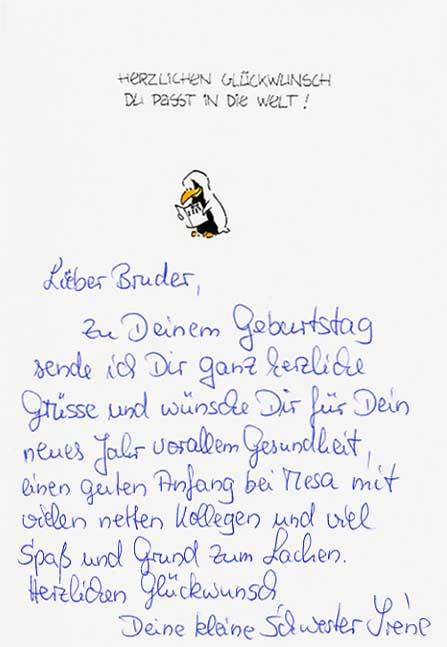 HERZLICHEN GLÜCKWUNSCH
DU PASST IN DIE WELT!
Lieber Bruder,
zu Deinem Geburtstag
sende ich Dir ganz herzliche
Grüsse und wünsche Dir für Dein
neues Jahr vorallem Gesundheit,
einen guten Anfang bei Mesa mit
vielen netten Kollegen und viel
Spaß und Grund zum Lachen.
Herzlichen Glückwunsch
Deine kleine Schwester Irene